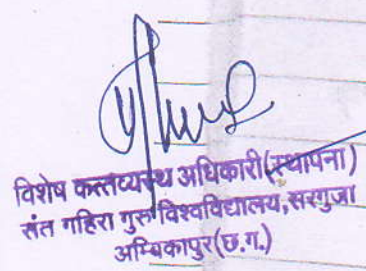 विशेष कर्त्तव्यस्थ अधिकारी(स्थापना)
संत गहिरा गुरु विश्वविद्यालय,सरगुजा
अम्बिकापुर(छ.ग.)